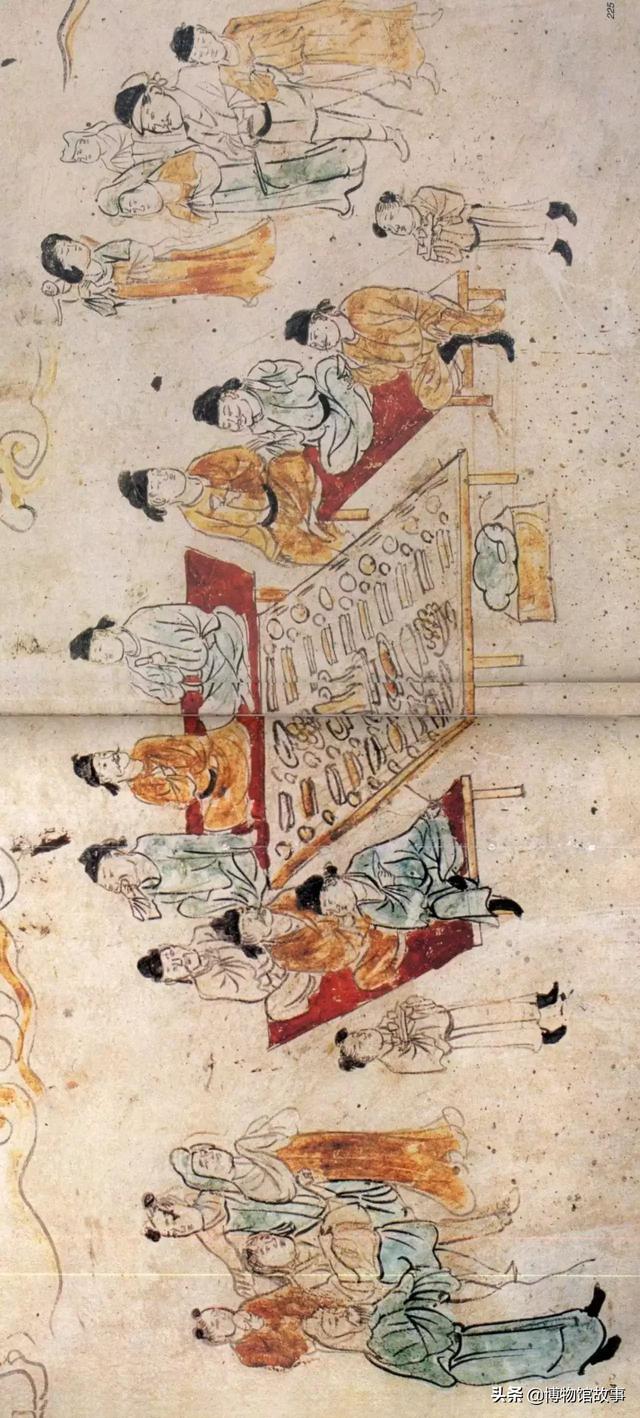 225
头条 @博物馆故事